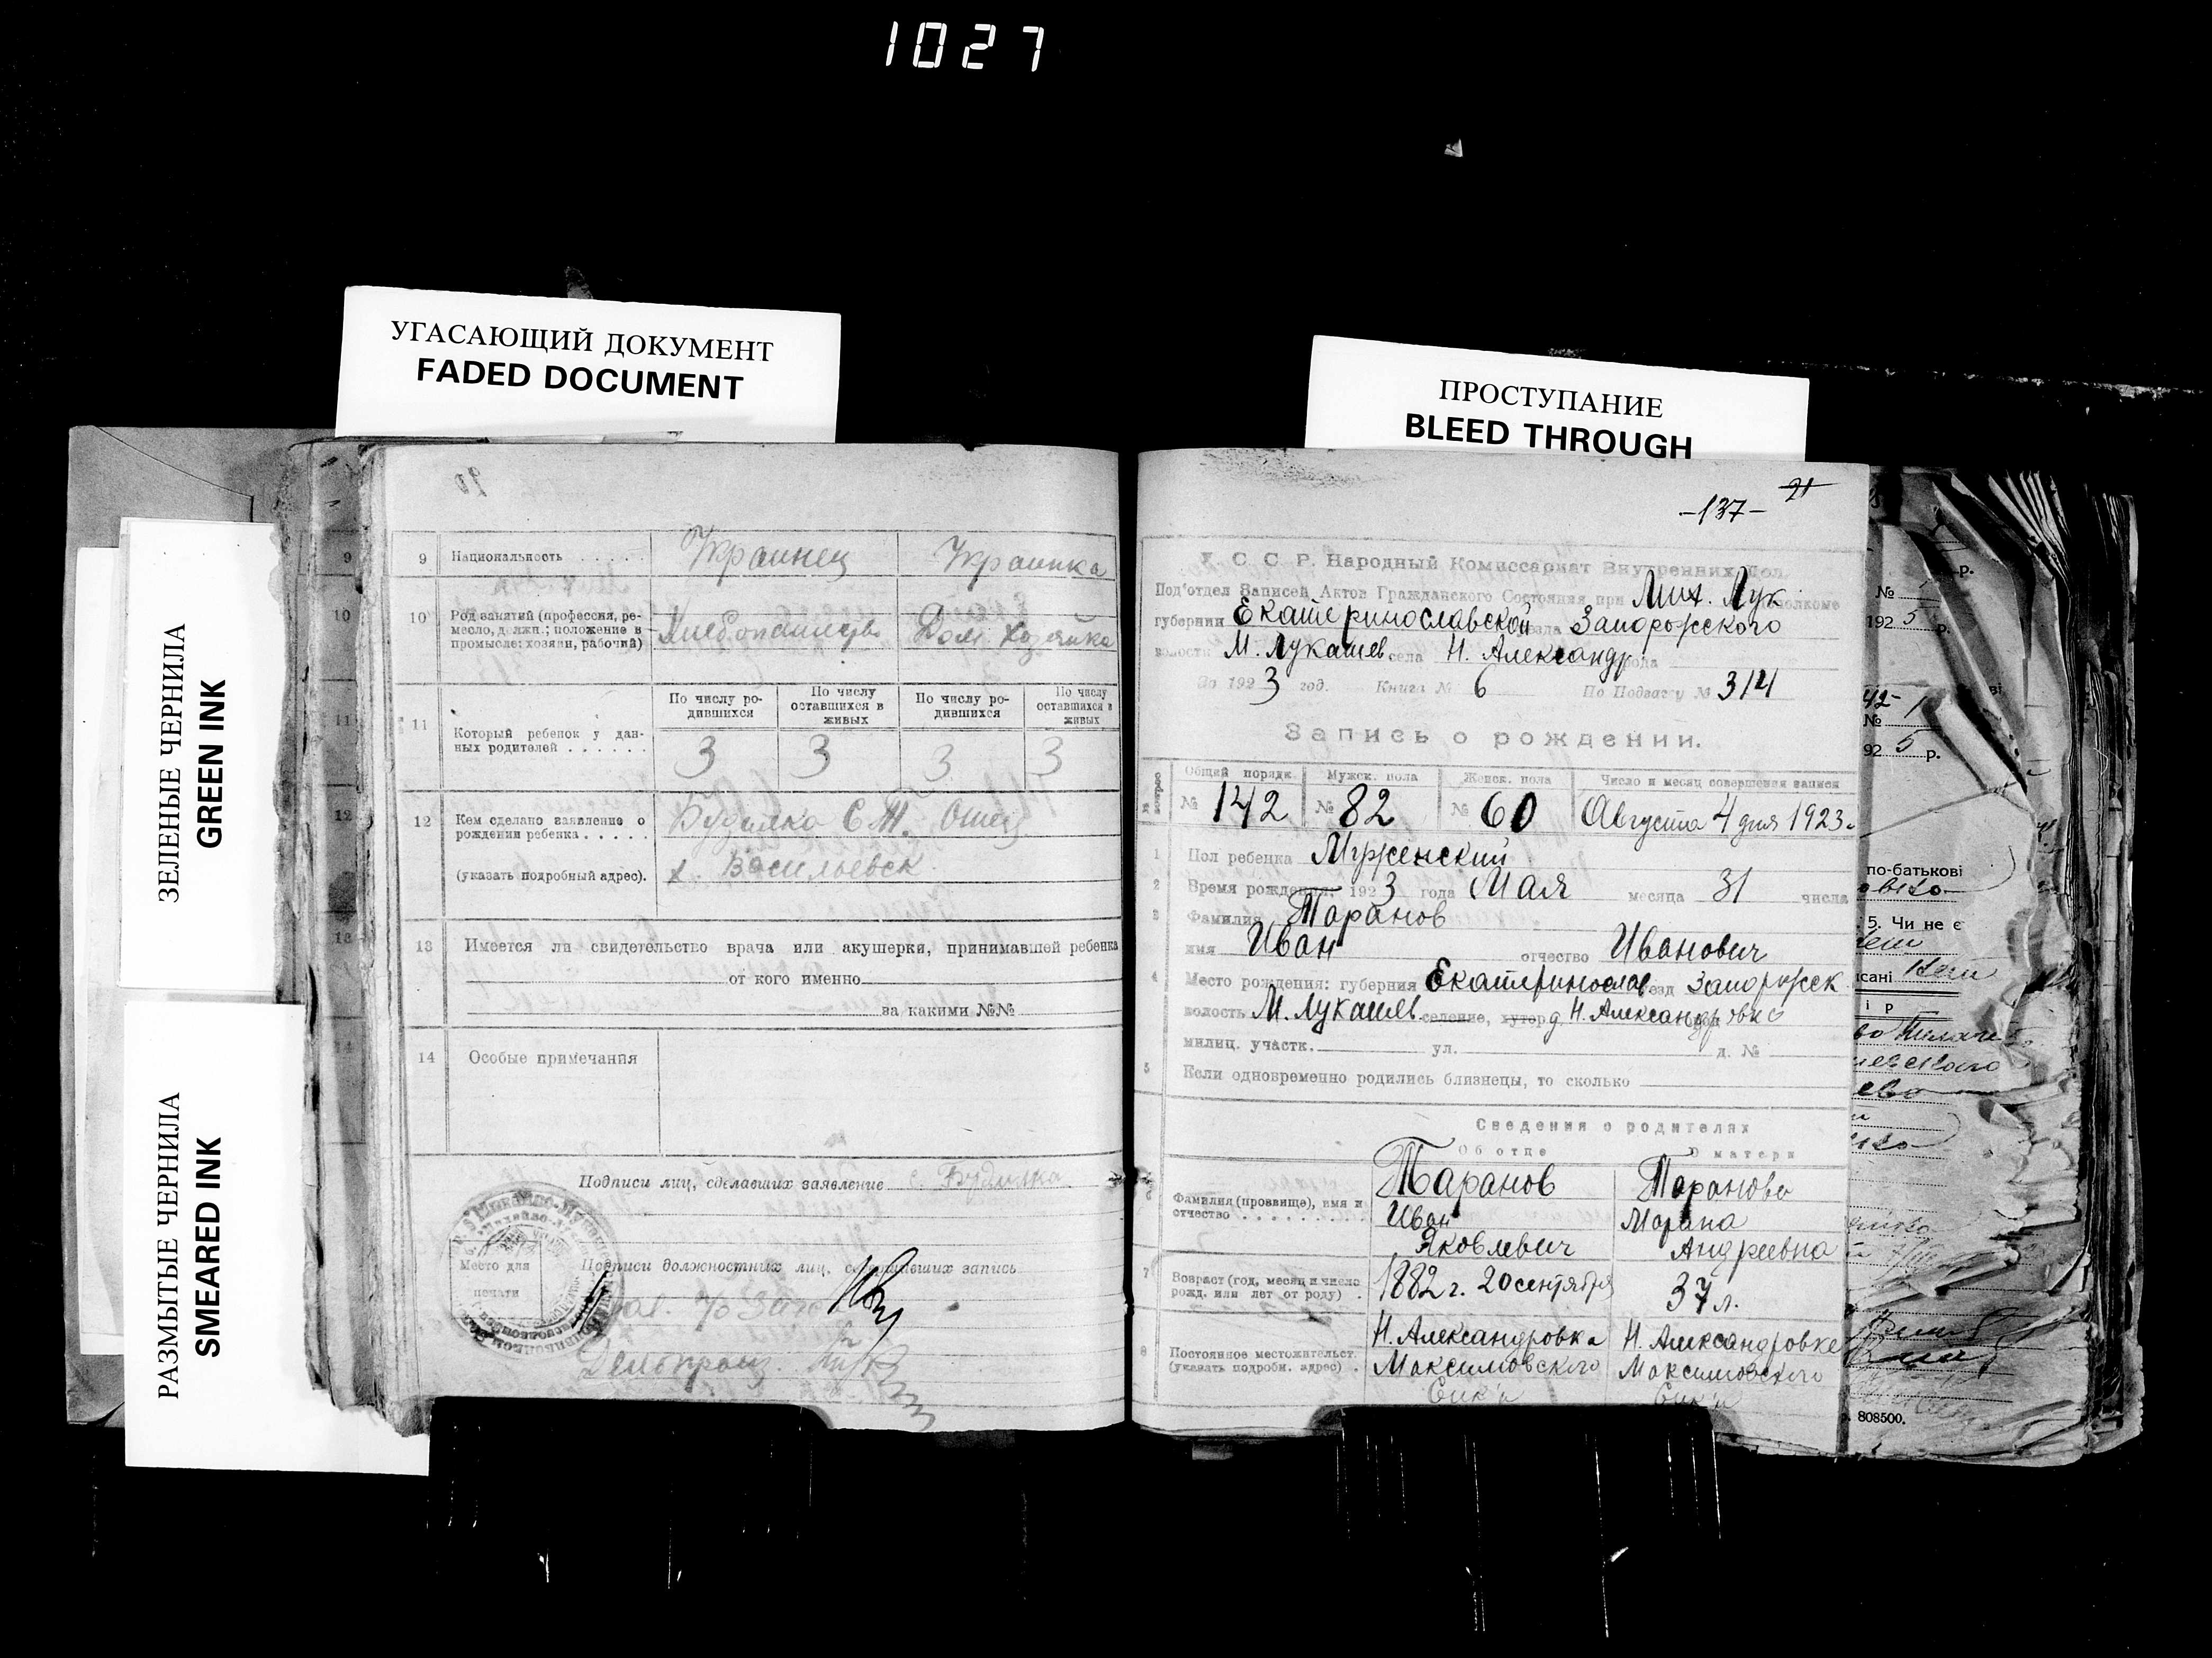 1027
УГАСАЮЩИЙ ДОКУМЕНТ
FADED DOCUMENT
ПРОСТУПАНИЕ
BLEED THROUGH
ЗЕЛЕНЫЕ ЧЕРНИЛА
GREEN INK
РАЗМЫТЫЕ ЧЕРНИЛА
SMEARED INK
9 Национальность . . . . . Украинец Украинка
10 Род занятий (профессия, ре-
месло, должн.; положение в
промысле: хозяин, рабочий) Хлебопашество Дом. хозяйка
11 Который ребенок у дан-
ных родителей . . . . . .
По числу ро-
дившихся
По числу
оставшихся в
живых
По числу ро-
дившихся
По числу
оставшихся в
живых
3 3 3 3
12 Кем сделано заявление о
рождении ребенка . . . . .
(указать подробный адрес).
Будилко С Т. Отец
х. Васильевск
13 Имеется ли свидетельство врача или акушерки, принимавшей ребенка
от кого именно
за какими №№
14 Особые примечания
Подписи лиц, сделавших заявление с. Будилка
Место для
печати
Подписи должностных лиц, совершивших запись
Делопроиз.
-137- 21
У. С. С. Р. Народный Комиссариат Внутренних Дел.
Под'отдел Записей Актов Гражданского Состояния при Мих. Лук исполкоме
губернии Екатеринославской уезда Запорожского
волости М. Лукашев села Н. Александр
За 1923 год. Книга № 6 По Подвассу № 314
Запись о рождении.
Общий порядк. Мужск. пола Женск. пола Число и месяц совершения записи
№ 142 № 82 № 60 Августа 4 дня 1923 г
1 Пол ребенка Мужеский
2 Время рождения: 1923 года Мая месяца 31 числа
3 Фамилия Таранов
имя Иван отчество Иванович
4 Место рождения: губерния Екатеринослав уезд Запорожск
волость М. Лукашев селение, хутор д Н. Александровка
милиц. участк. ул. д. №
5 Если одновременно родились близнецы, то сколько
Сведения о родителях
Об отце О матери
6 Фамилия (прозвище), имя и
отчество . . . . . . . . .
Таранов
Иван
Яковлевич
Таранова
Марина
Андреевна
7 Возраст (год, месяц и число
рожд. или лет от роду) . 1882 г. 20 сентября 37 л.
8 Постоянное местожительст.
(указать подробн. адрес) .
Н. Александровка
Максимовского
Н. Александровке
Максимовского
№
192 5 р.
№
92 5 р.
по-батькові
5. Чи не є
808500.